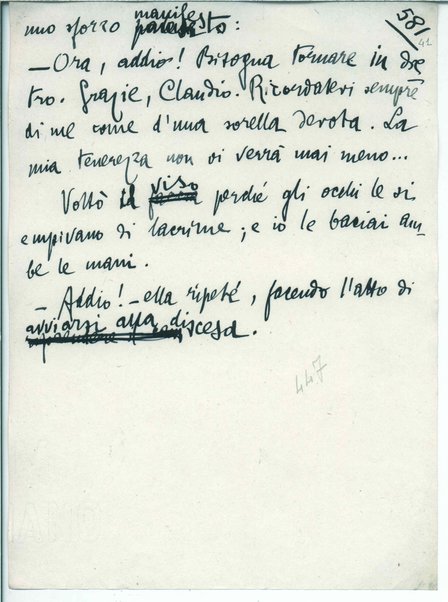 581
42
uno sforzo manifesto:
— Ora, addio! Bisogna tornare in die
tro. Grazie, Claudio. Ricordatevi sempre
di me come d'una sorella devota. La
mia tenerezza non vi verrà mai meno...
Voltò il viso perché gli occhi le si
empivano di lacrime; e io le baciai am-
be le mani.
— Addio! — ella ripeté, facendo l'atto di
avviarsi alla discesa.
447